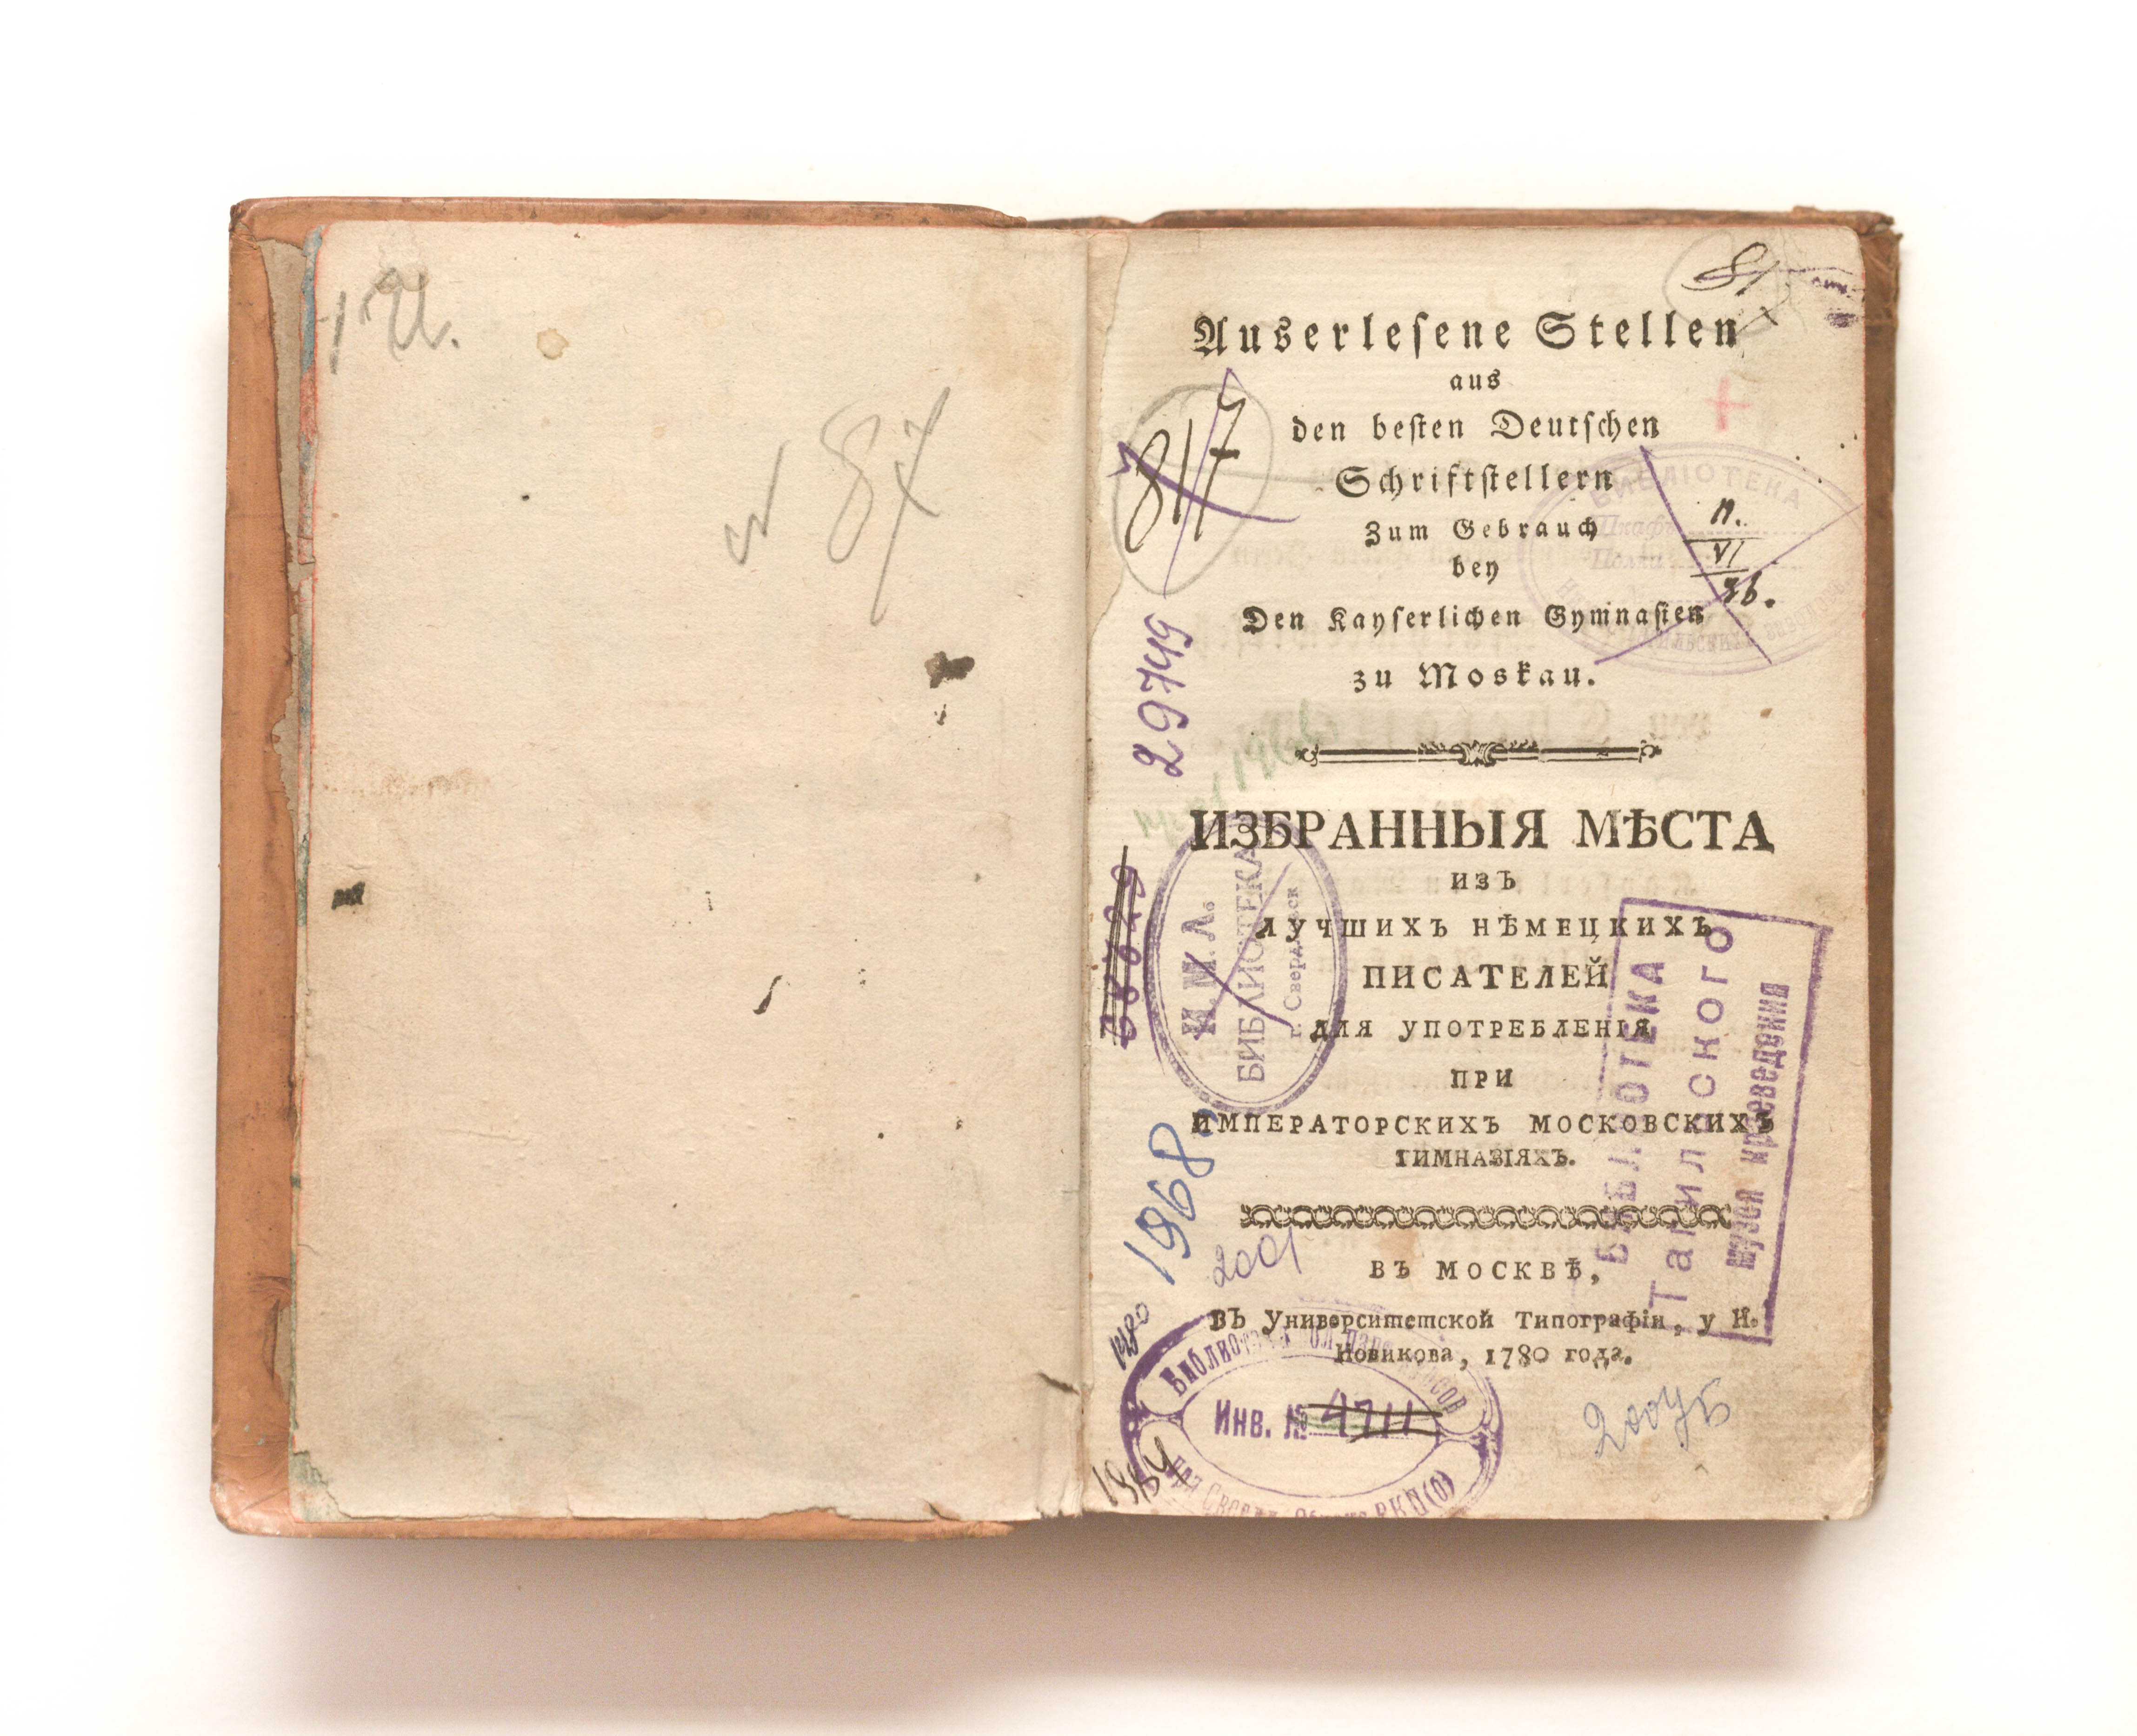 81
Auserleſene Stellen
aus
den beſten Deutſchen
Schriftſtellern
Zum Gebrauch
bey
Den Kayſerlichen Gymnaſien
zu Moskau.
ИЗБРАННЫЯ МѢСТА
ИЗЪ
ЛУЧШИХЪ НѢМЕЦКИХЪ
ПИСАТЕЛЕЙ
ДЛЯ УПОТРЕБЛЕНІЯ
ПРИ
ИМПЕРАТОРСКИХЪ МОСКОВСКИХЪ
ГИМНАЗІЯХЪ.
ВЪ МОСКВѢ,
ВЪ Университетской Типографіи, у Н.
Новикова, 1780 года.
817
29749
1968
2001
1980
1984
20045
БИБЛІОТЕКА
Шкафъ
Полка
П.
VI
И.М.Л.
БИБЛИОТЕКА
г. Свердловск
БИБЛИОТЕКА
Тагильского
музея краеведения
Библиотека
Инв. № 4711
при Сверд. Обкоме ВКП(б)